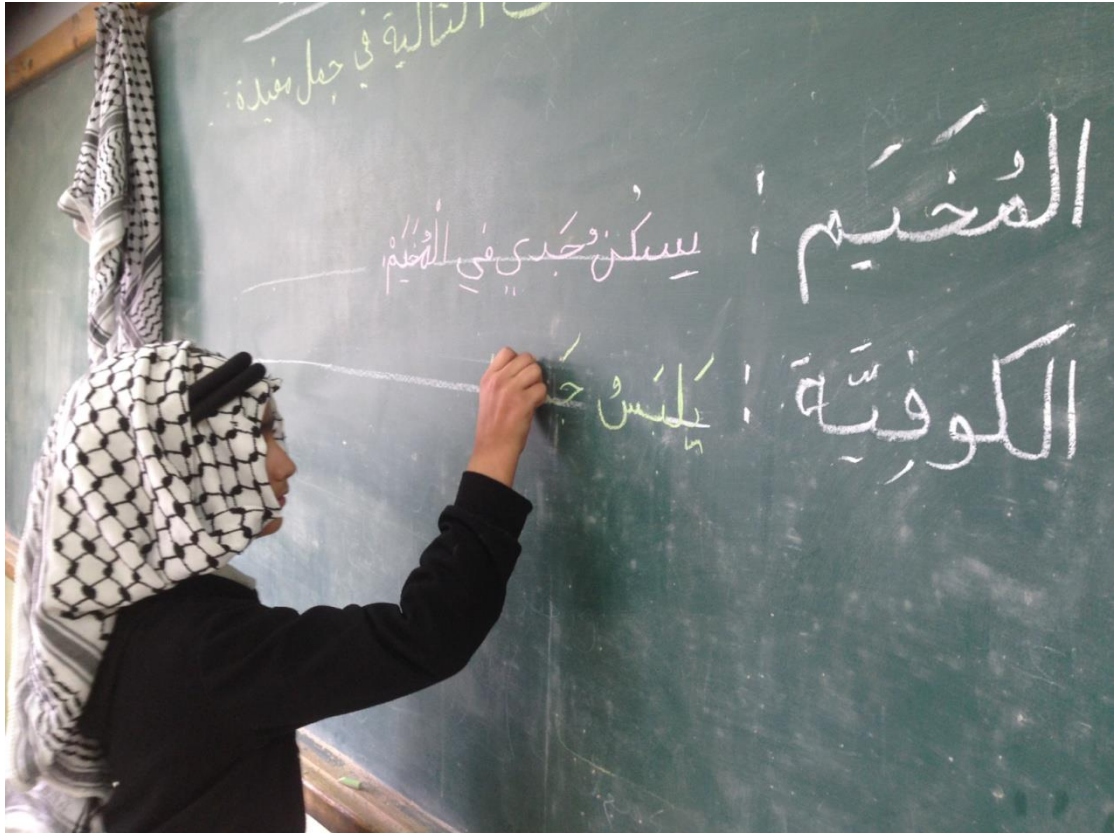 التالية في جمل مفيدة:
المُخَيَم : يسكنُ جَدي في المُخَيَمْ
الكوفِيَّة : يَلبَسُ جَ